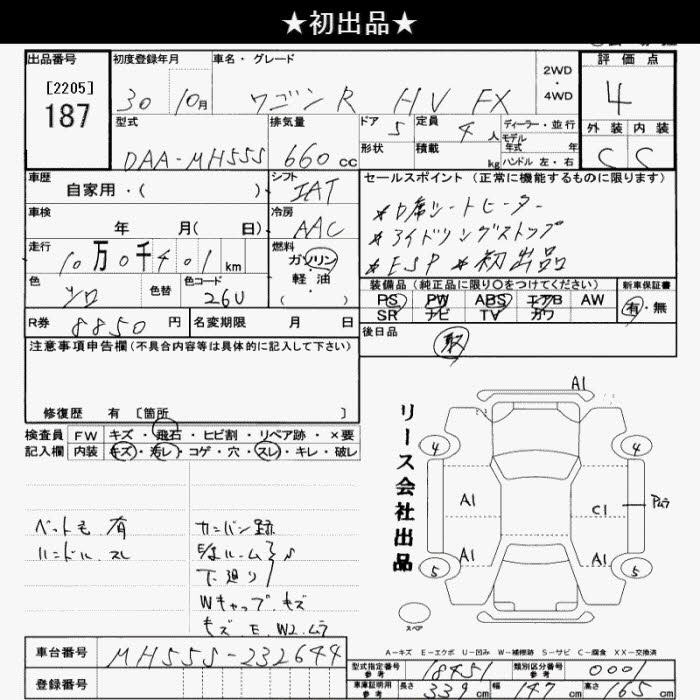 ★初出品★
出品番号
[2205]
187
初度登録年月
30 10月
車名・グレード
ワゴンR HV FX
2WD
・
4WD
評価点
4
外装 内装
C C
型式
DAA-MH55S
排気量
660 cc
ドア 5
形状
定員 4 人
積載 kg
ディーラー・並行
モデル年式 年
ハンドル 左・右
車歴
自家用・( )
シフト
IAT
車検
年 月( 日)
冷房
AAC
走行
10万0千401km
燃料
ガソリン
軽油
( )
色
シロ
色替
色コード
26U
R券 8850円
名変期限 月 日
セールスポイント (正常に機能するものに限ります)
*D席シートヒーター
*アイドリングストップ
*ESP *初出品
装備品 (純正品に限り○をつけてください)
新車保証書
PS PW ABS エアB AW
SR ナビ TV カワ
有・無
後日品
取
注意事項申告欄 (不具合内容等は具体的に記入して下さい)
修復歴 有 [箇所 ]
検査員記入欄
FW キズ・飛石・ヒビ割・リペア跡・×要
内装 キズ・汚レ・コゲ・穴・スレ・キレ・破レ
ペット毛 有
ハンドル スレ
カンバン跡
下廻り
Wキャップ キズ
キズ.E.W2.ムラ
リース会社出品
A1
4 4
A1
C1
Pムラ
A1 A1
5 5
スペア
A-キズ E-エクボ U-凹み W-補修跡 S-サビ C-腐食 XX-交換済
車台番号 MH55S-232644
登録番号
型式指定番号 参考 18451
類別区分番号 参考 0001
車庫証明用 参考 長さ 339 cm 幅 147 cm 高さ 165 cm